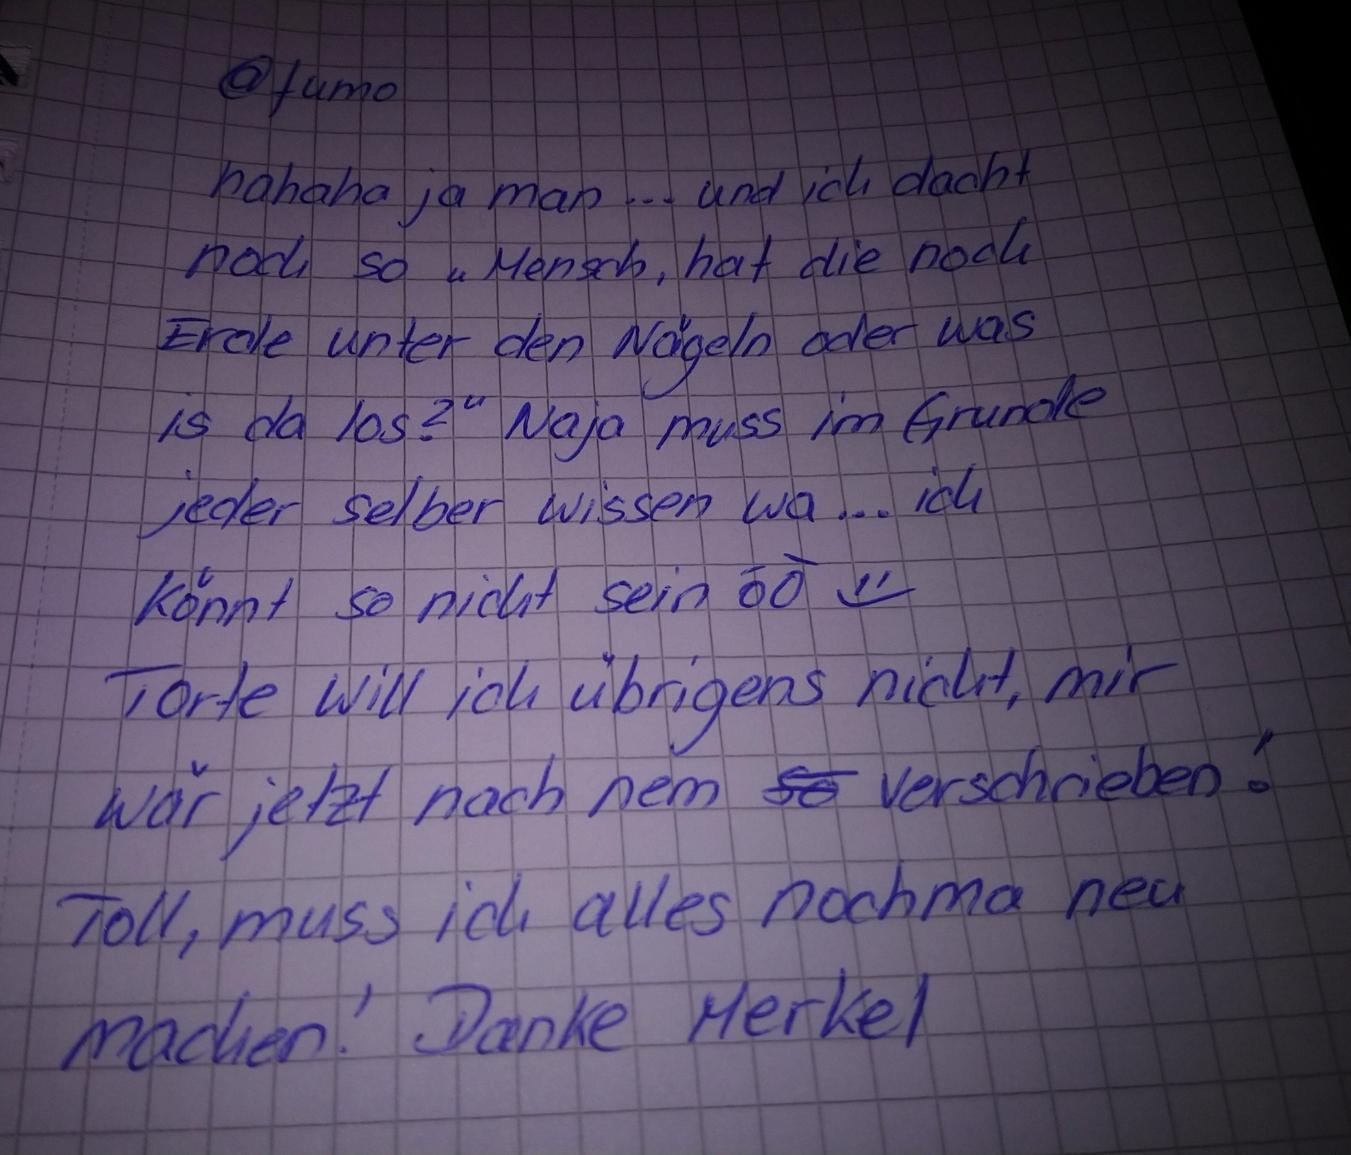 @fumo
hahaha ja man ... und ich dacht
noch so „Mensch, hat die noch
Erde unter den Nägeln oder was
is da los?“ Naja muss im Grunde
jeder selber wissen wa... ich
könnt so nicht sein ōō
Torte will ich übrigens nicht, mir
wär jetzt nach nem so verschrieben!
Toll, muss ich alles nochma neu
machen! Danke Merkel